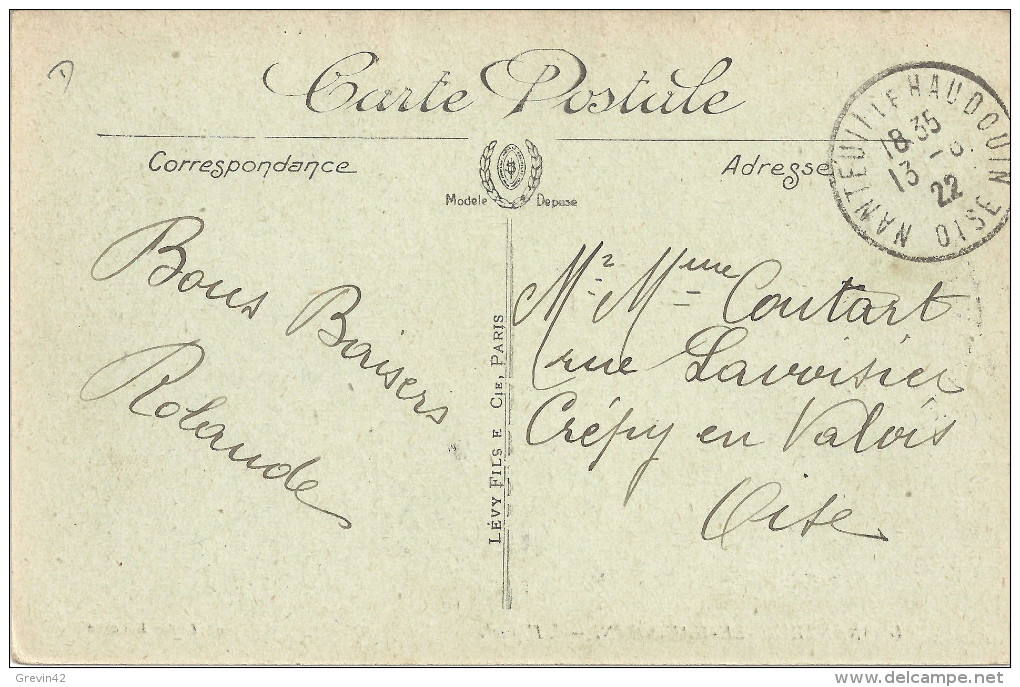 Carte Postale
Correspondance
Adresse
Modèle Déposé
NANTEUIL LE HAUDOUIN OISE
18 35
13 -8
22
Bons Baisers
Rolande
LÉVY FILS E CIE, PARIS
Mr Mme Coutart
rue Lavoisier
Crépy en Valois
Oise
Grevin42